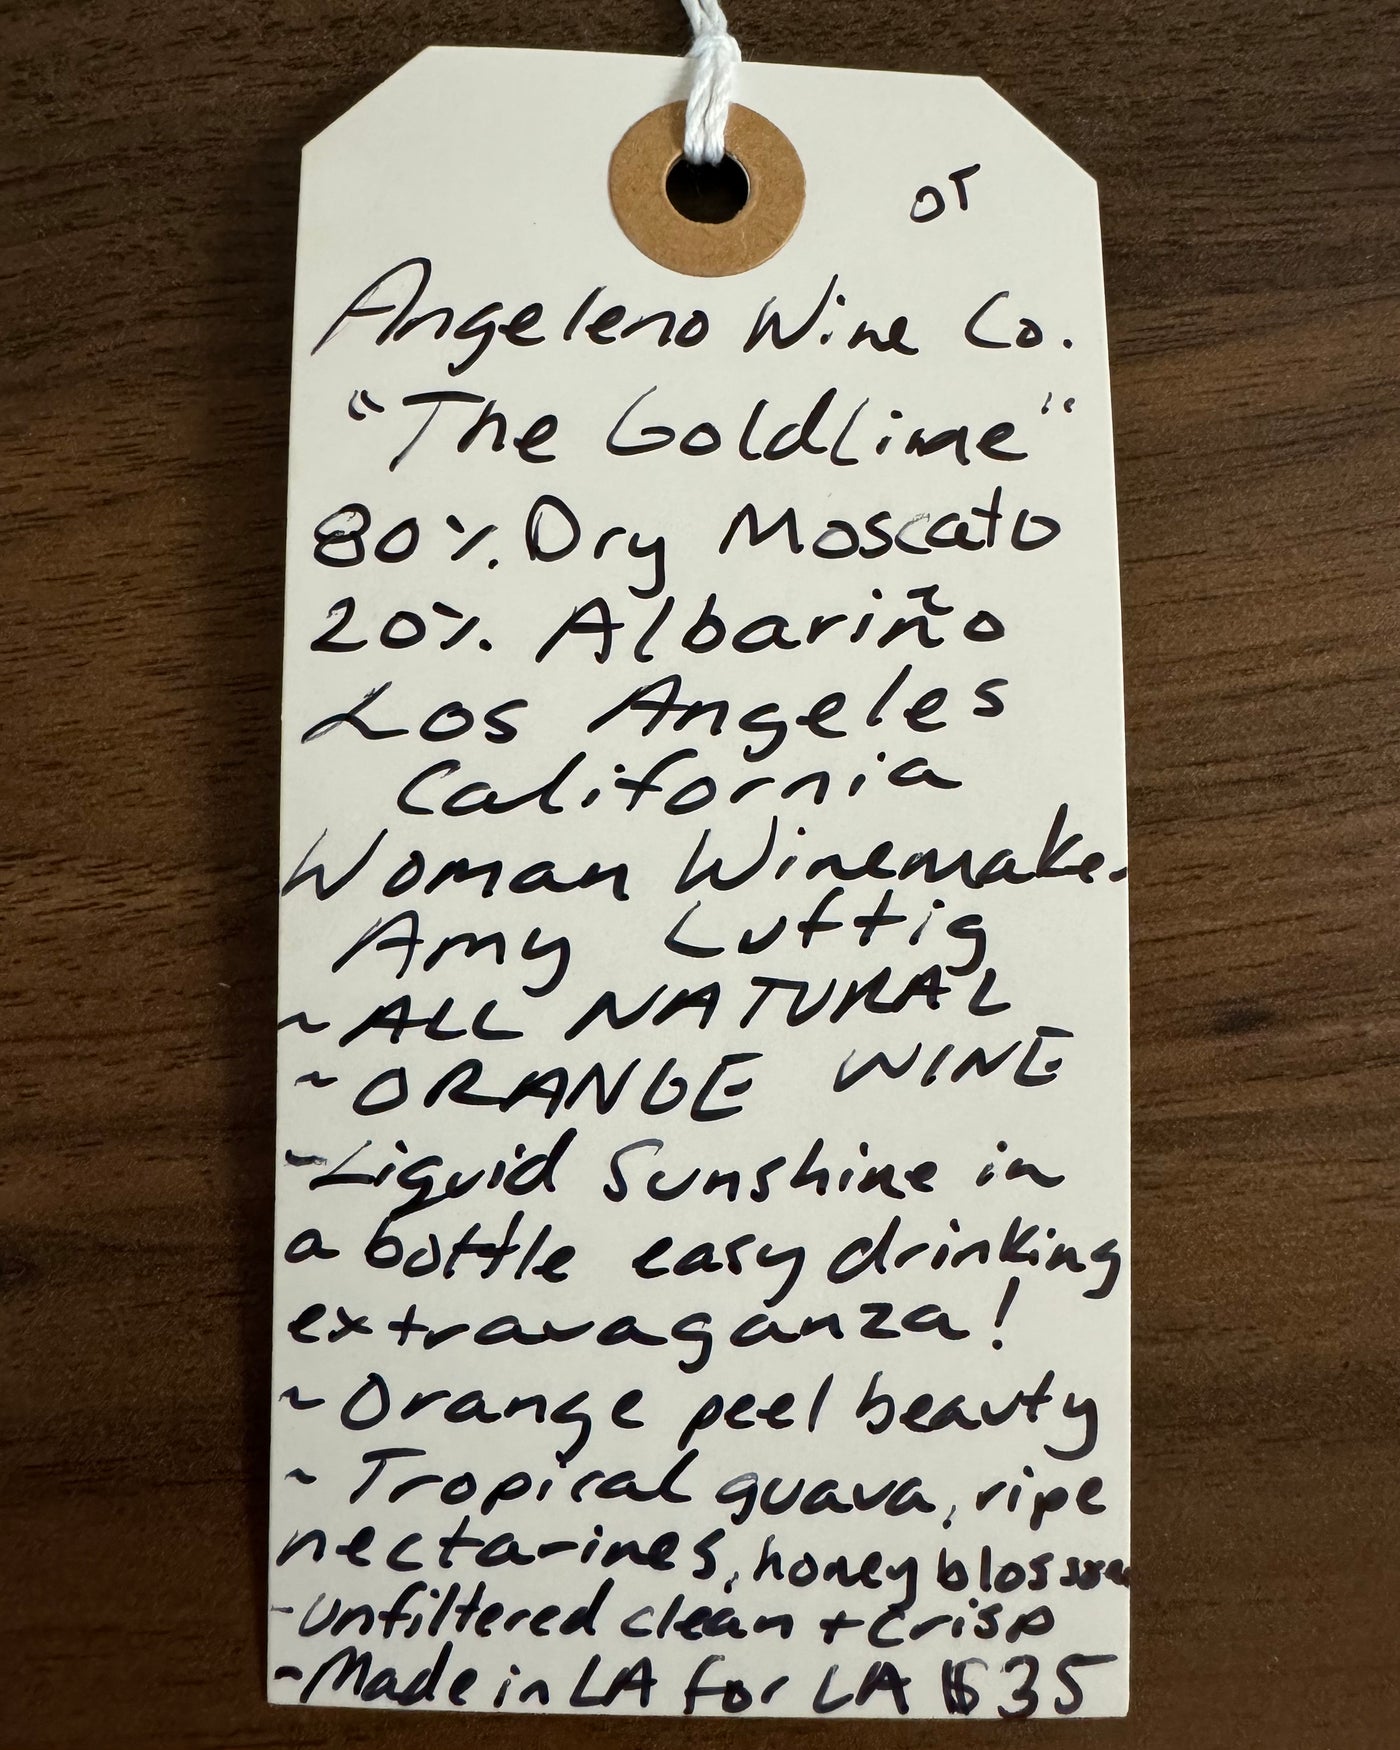 OT
Angeleno Wine Co.
"The Goldline"
80% Dry Moscato
20% Albariño
Los Angeles
California
Woman Winemaker
Amy Luftig
~ALL NATURAL
~ORANGE WINE
~Liquid Sunshine in
a bottle easy drinking
extravaganza!
~Orange peel beauty
~Tropical guava, ripe
nectarines, honey blossom
-unfiltered clean + crisp
~Made in LA for LA $35